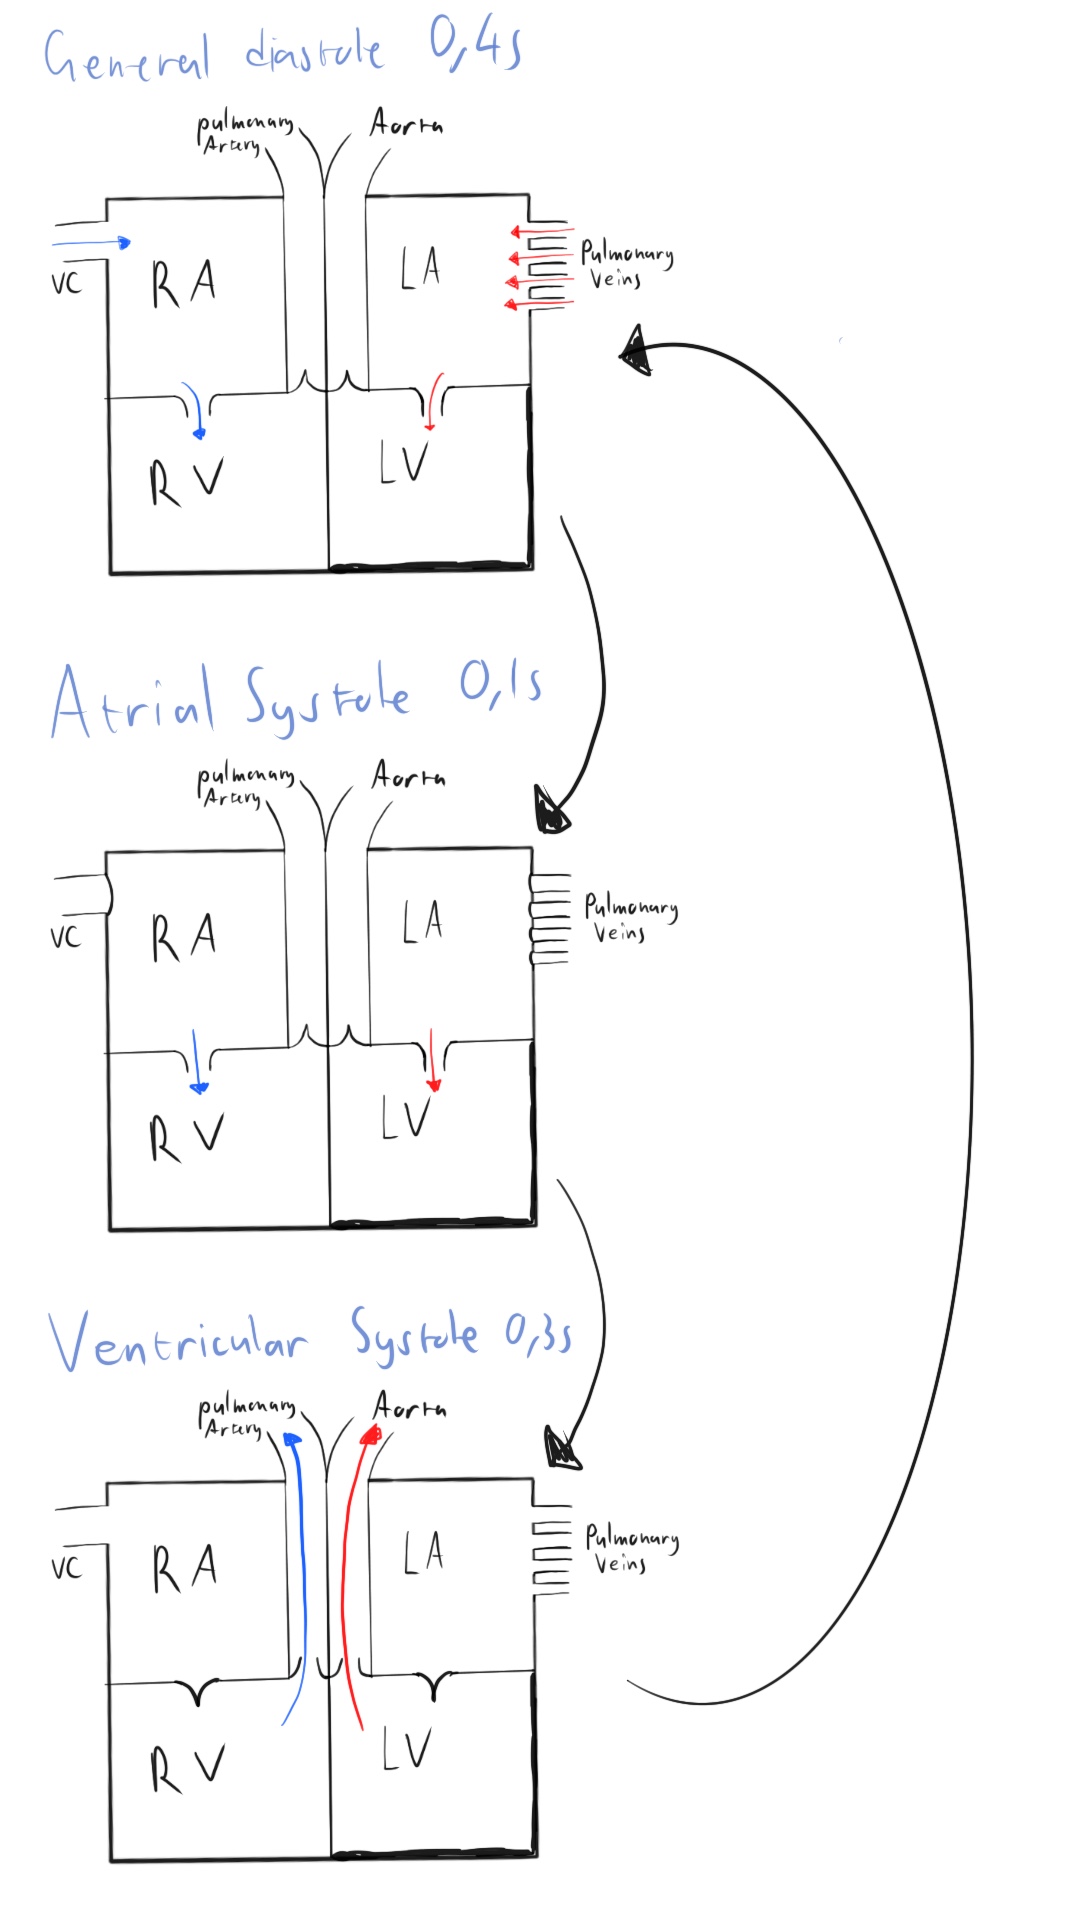 General diastole 0,4s
pulmonary
Artery
Aorta
VC
RA
LA
Pulmonary
Veins
RV
LV
Atrial Systole 0,1s
pulmonary
Artery
Aorta
VC
RA
LA
Pulmonary
Veins
RV
LV
Ventricular Systole 0,3s
pulmonary
Artery
Aorta
VC
RA
LA
Pulmonary
Veins
RV
LV